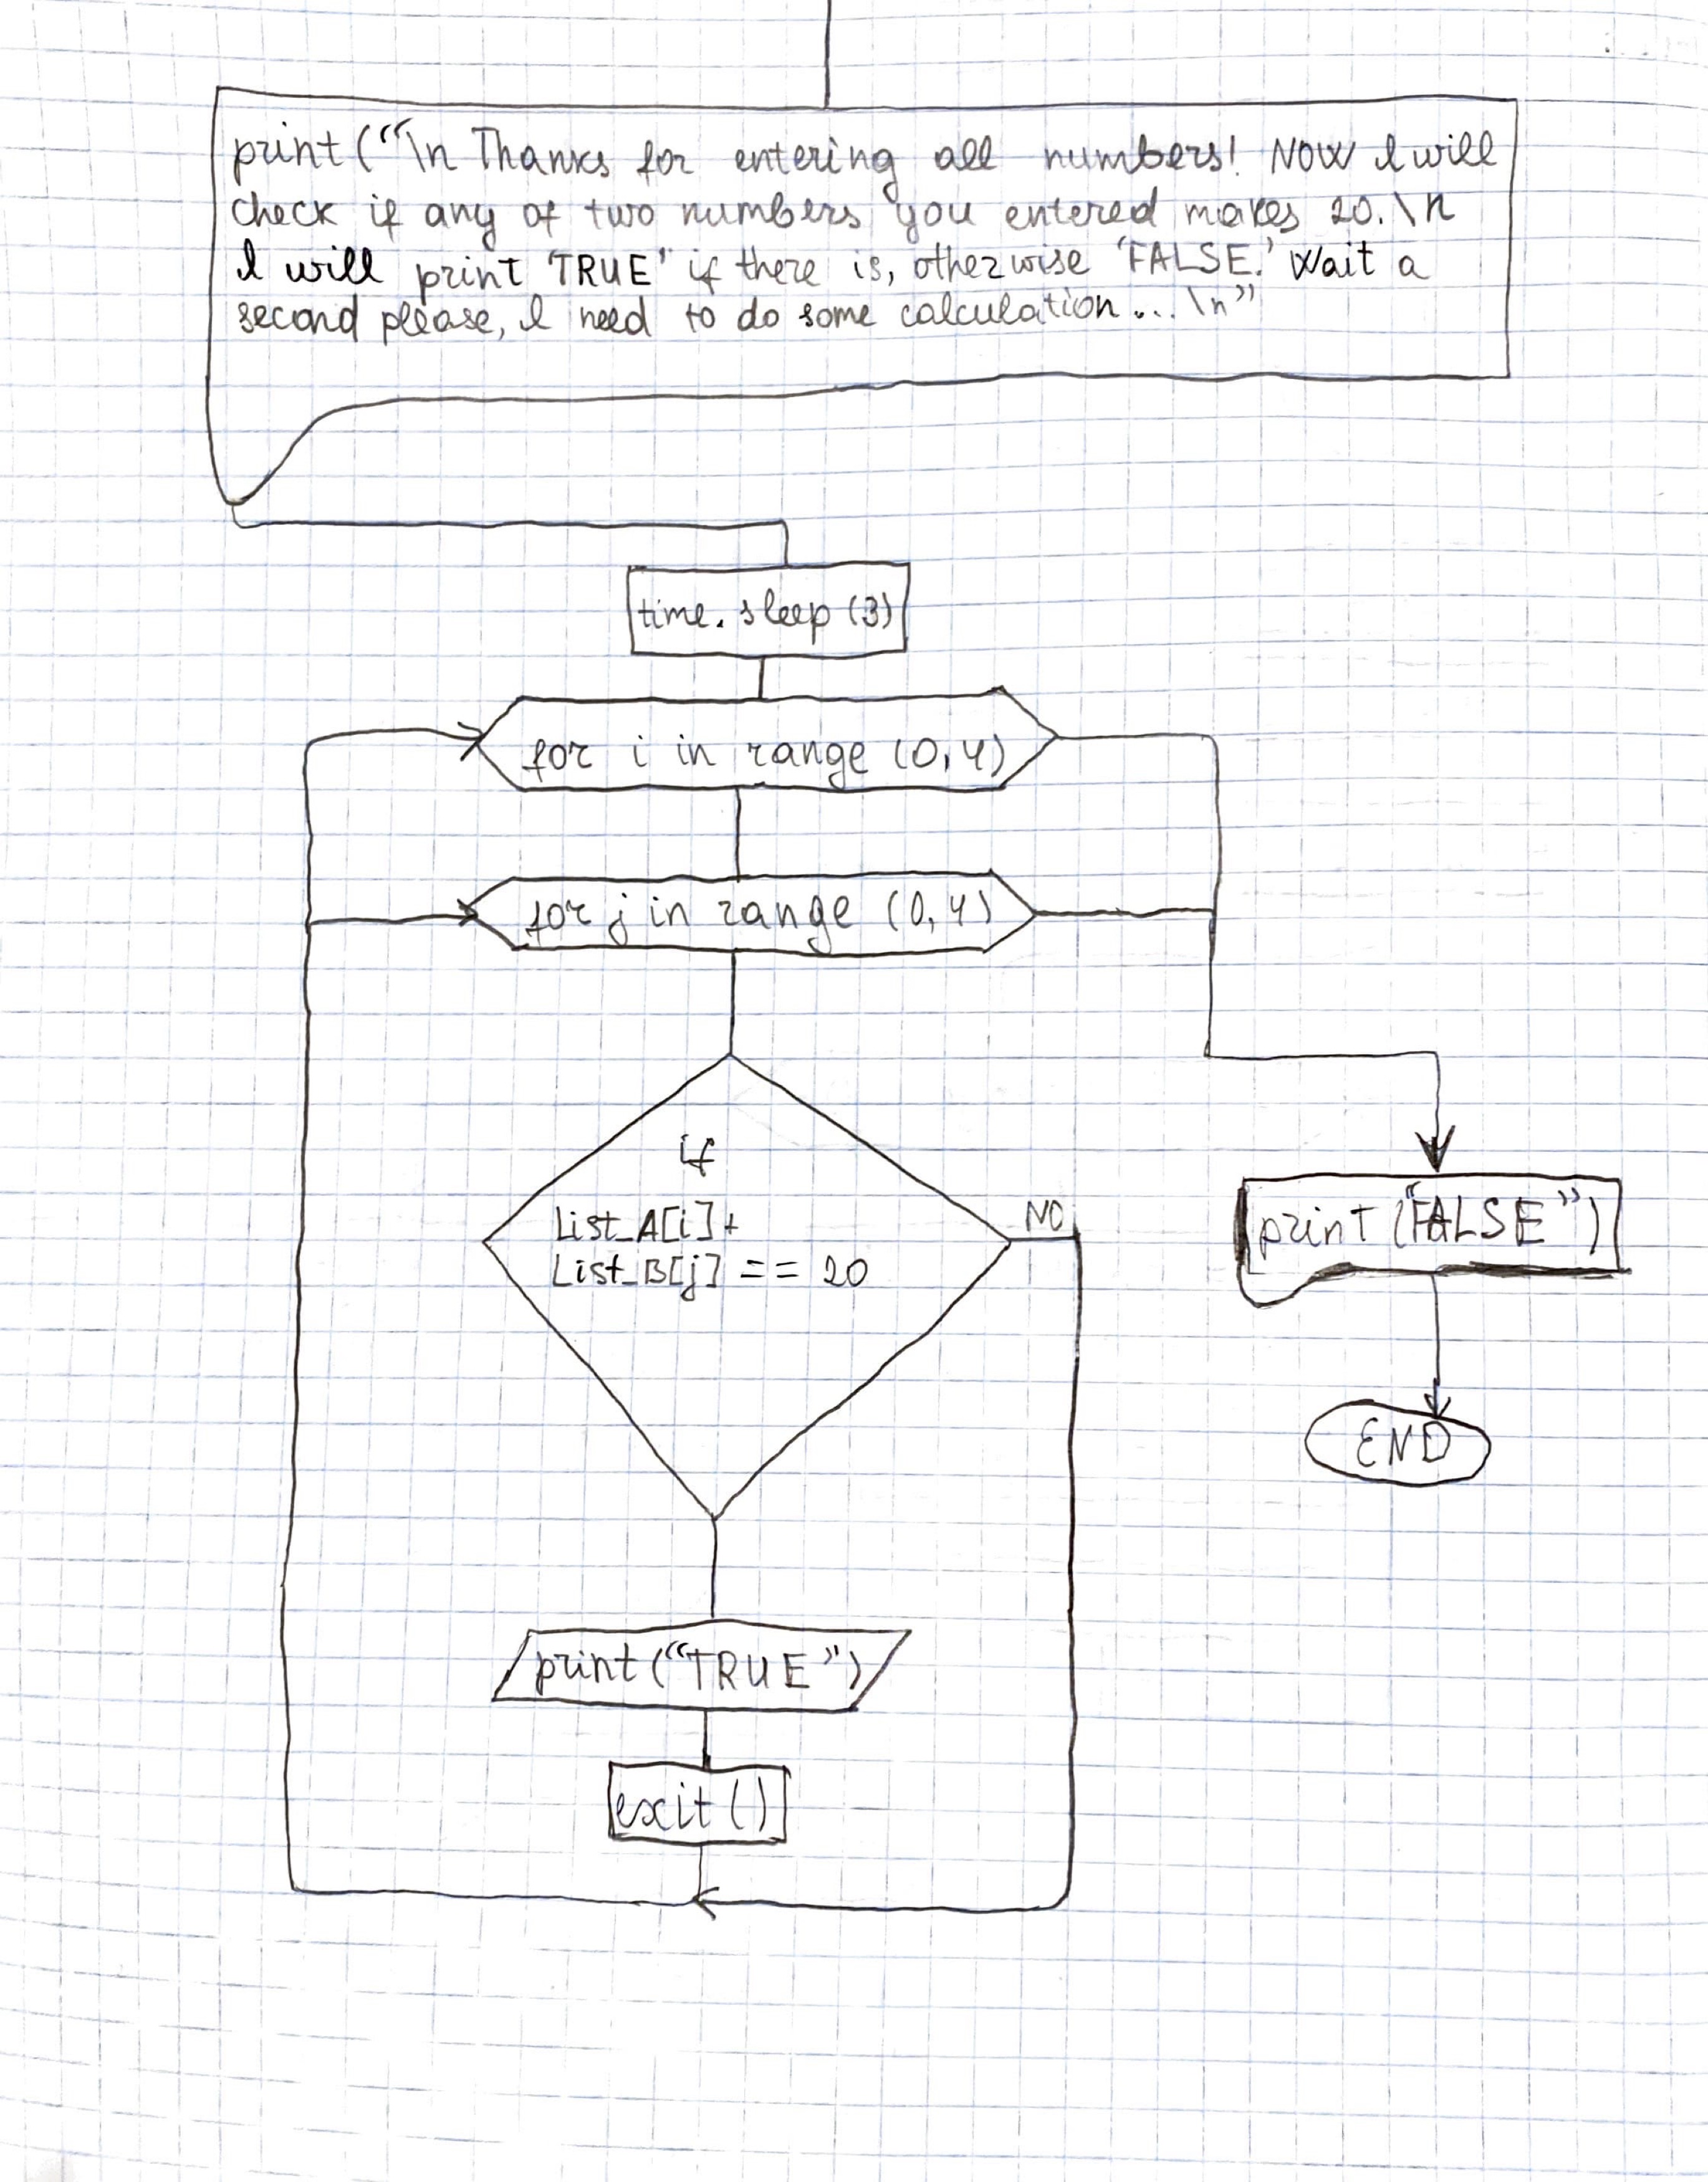 print (“\n Thanks for entering all numbers! NOW I will
check if any of two numbers you entered makes 20. \n
I will print 'TRUE' if there is, otherwise 'FALSE.' Wait a
second please, I need to do some calculation... \n”
time. sleep (3)
for i in range (0,4)
for j in range (0,4)
if
List_A[i]+
List_B[j] == 20
NO
print (“FALSE”)
END
print (“TRUE”)
exit ()